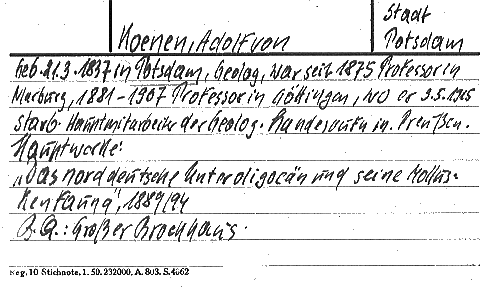 Koenen, Adolf von
Stadt
Potsdam
Geb. 21.3.1837 in Potsdam, Geolog, war seit 1875 Professor in
Marburg, 1881-1907 Professor in Göttingen, wo er 3.5.1915
starb. Hauptmitarbeiter der Geolog. Landesanst. in Preußen.
Hauptwerke:
„Das norddeutsche Unteroligocän und seine Mollus-
kenfauna", 1889/94
B.Q.: Großer Brockhaus.
Reg. 10 Stichnote, 1. 50. 232000, A. 803. S. 4662